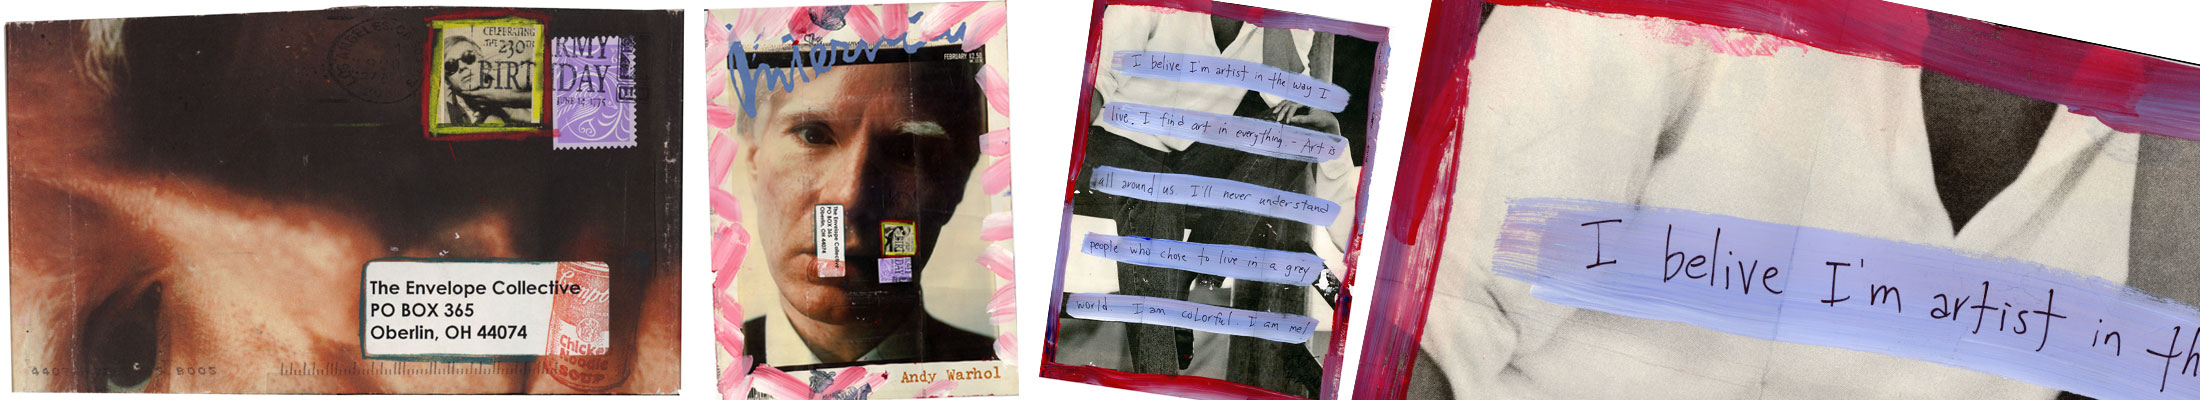 CELEBRATING
THE 230TH
ARMY
BIRTHDAY
JUNE 14, 1775
The Envelope Collective
PO BOX 365
Oberlin, OH 44074
Chicken
Noodle
SOUP
Interview
FEBRUARY $2.50
The Envelope Collective
PO BOX 365
Oberlin, OH 44074
Andy Warhol
I belive I'm artist in the way I
live. I find art in everything - Art is
all around us. I'll never understand
people who chose to live in a grey
world. I am colorful. I am me!
I belive I'm artist in th